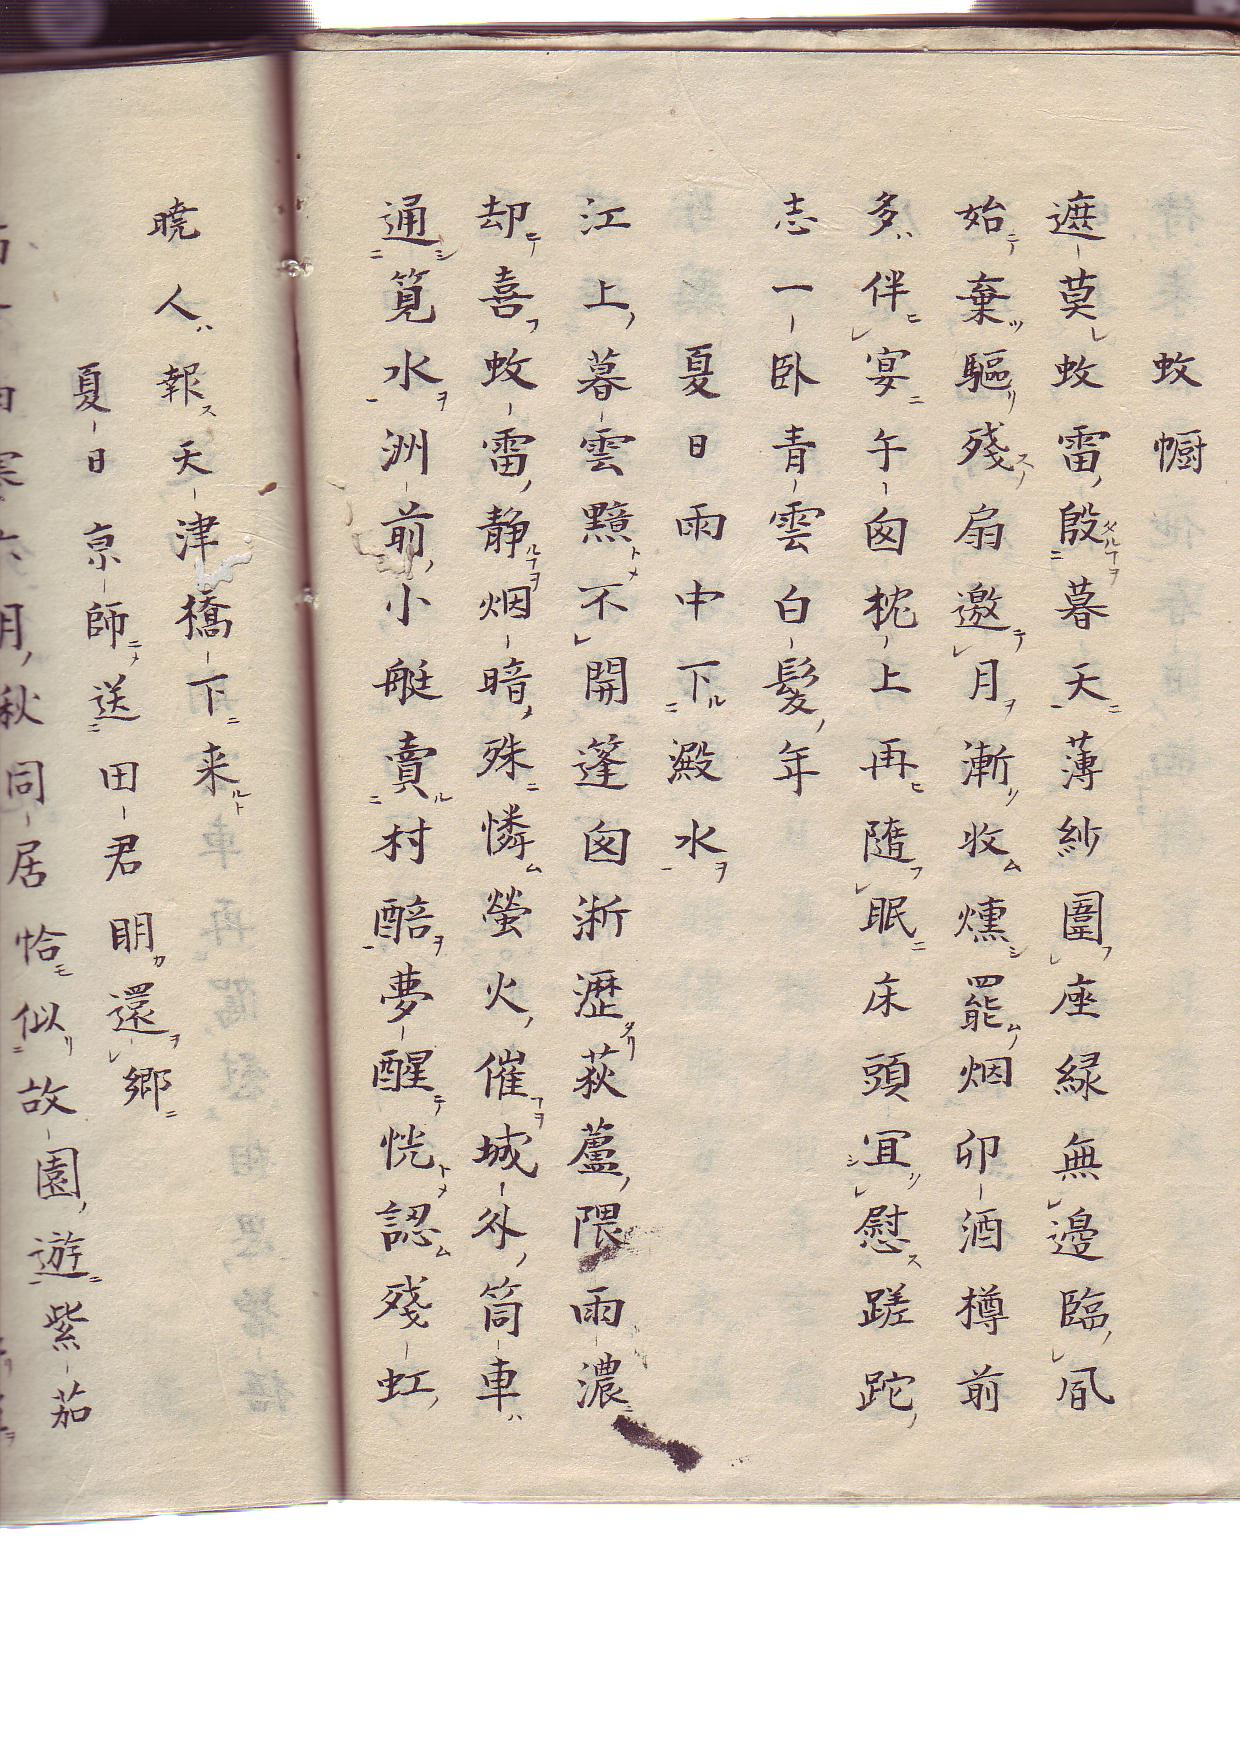 蚊幮
遮莫蚊雷殷暮天薄紗圍座緑無邊臨風
始棄驅殘扇邀月漸收燻罷烟卯酒樽前
多伴宴午囱枕上再隨眠床頭冝慰蹉跎
志一臥青雲白髮年
夏日雨中下澱水
江上暮雲黯不開蓬囱淅瀝荻蘆隈雨濃
却喜蚊雷静烟暗殊憐螢火催城外筒車
通筧水洲前小艇賣村醅夢醒恍認殘虹
曉人報天津橋下来
夏日京師送田君明還郷
月秋同居恰似故園遊紫茄